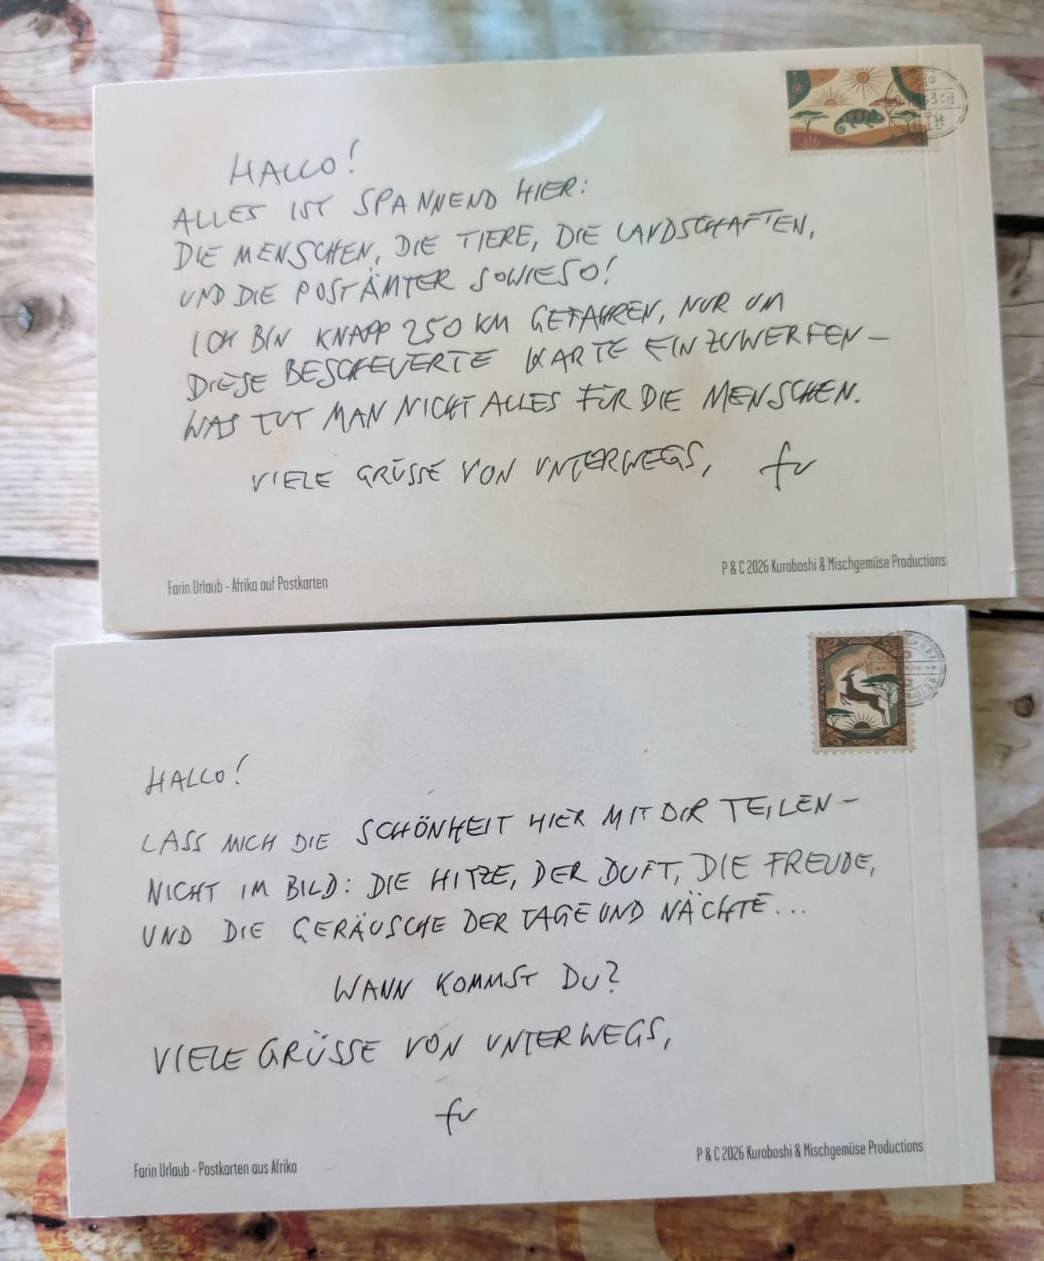 HALLO!
ALLES IST SPANNEND HIER:
DIE MENSCHEN, DIE TIERE, DIE LANDSCHAFTEN,
UND DIE POSTÄMTER SOWIESO!
ICH BIN KNAPP 250 KM GEFAHREN, NUR UM
DIESE BESCHEUERTE KARTE EINZUWERFEN –
WAS TUT MAN NICHT ALLES FÜR DIE MENSCHEN.
VIELE GRÜSSE VON UNTERWEGS, fu
Farin Urlaub - Afrika auf Postkarten
P & C 2026 Kuroboshi & Mischgemüse Productions
HALLO!
LASS MICH DIE SCHÖNHEIT HIER MIT DIR TEILEN –
NICHT IM BILD: DIE HITZE, DER DUFT, DIE FREUDE,
UND DIE GERÄUSCHE DER TAGE UND NÄCHTE...
WANN KOMMST DU?
VIELE GRÜSSE VON UNTERWEGS,
fu
Farin Urlaub - Postkarten aus Afrika
P & C 2026 Kuroboshi & Mischgemüse Productions